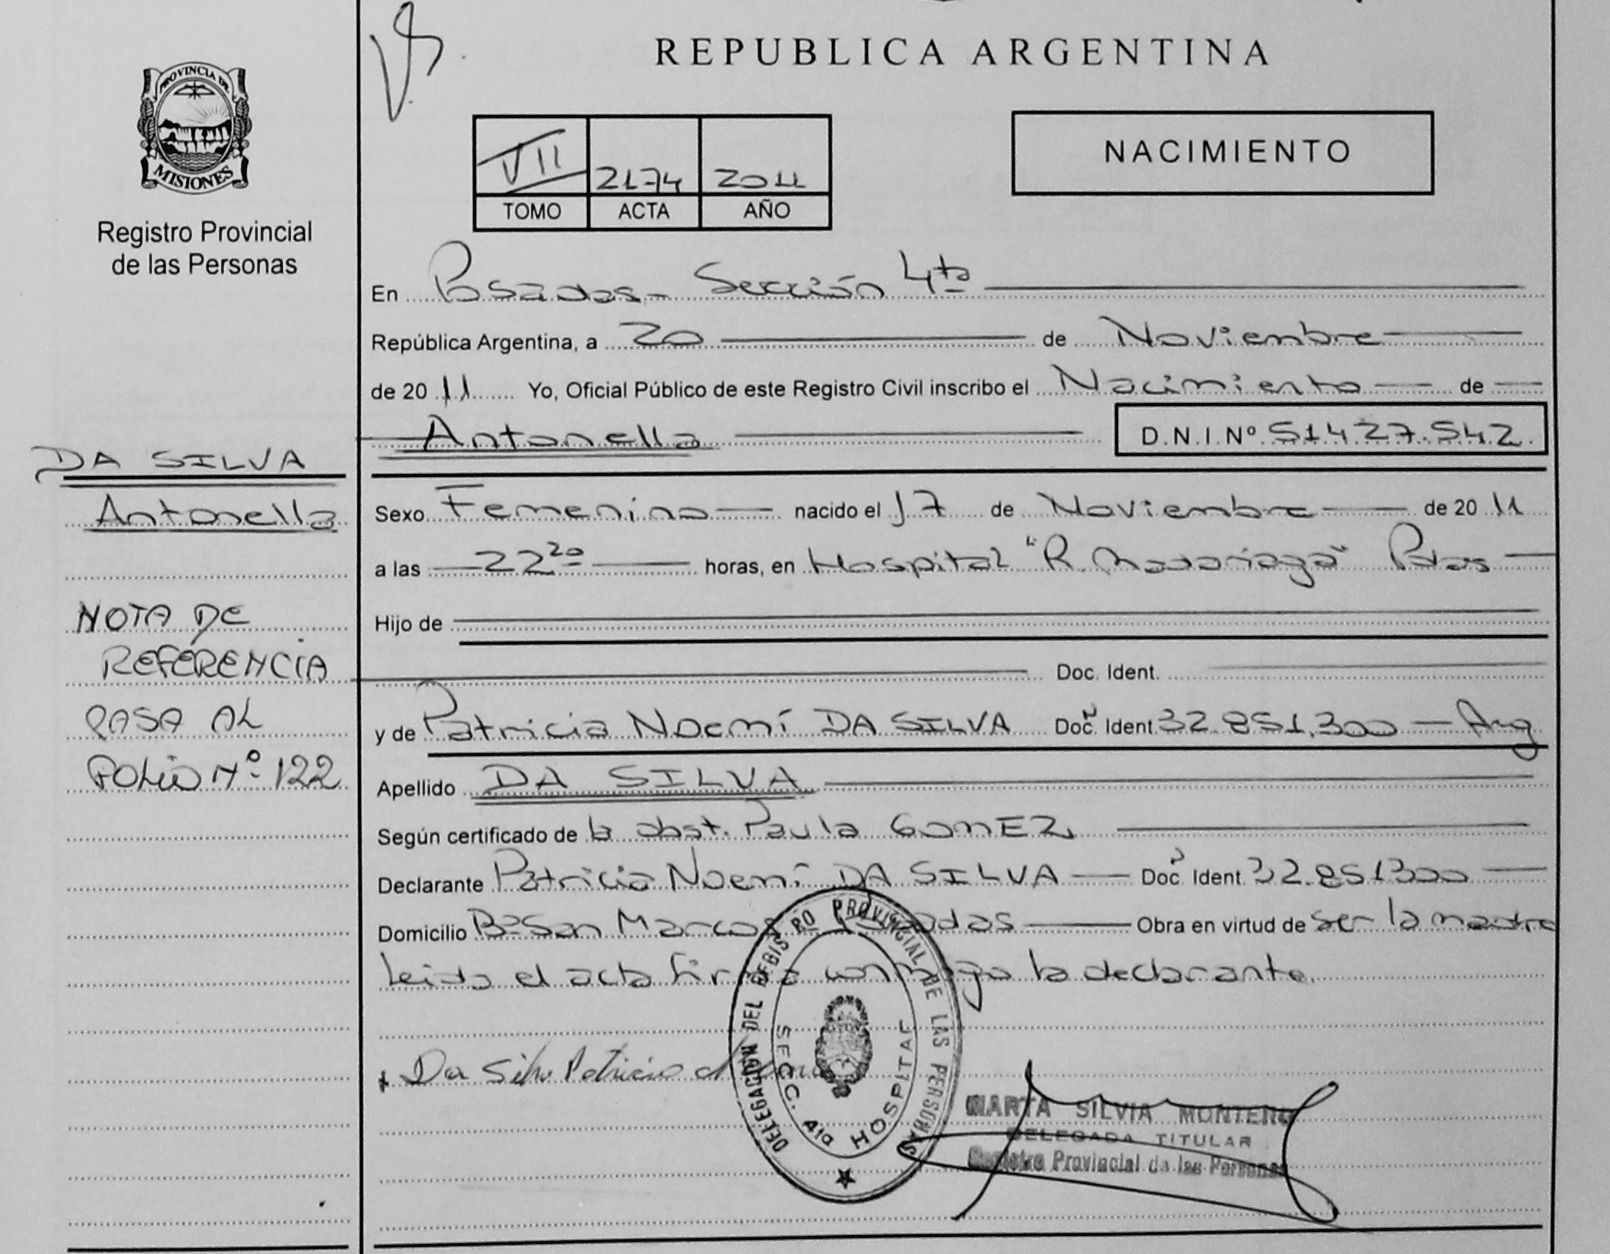 PROVINCIA DE
MISIONES
Registro Provincial
de las Personas
DA SILVA
Antonella
NOTA DE
REFERENCIA
PASA AL
FOLIO Nº 122
REPUBLICA ARGENTINA
VII 2174 2011
TOMO ACTA AÑO
NACIMIENTO
En Posadas - Sección 4ta
República Argentina, a 20 de Noviembre
de 2011 Yo, Oficial Público de este Registro Civil inscribo el Nacimiento de
Antonella D.N.I Nº 51427.542
Sexo Femenino nacido el 17 de Noviembre de 2011
a las 22 20 horas, en Hospital "R. Madariaga" Pdas
Hijo de
Doc. Ident.
y de Patricia Noemí DA SILVA Doc. Ident 32.851.300 - Arg
Apellido DA SILVA
Según certificado de la obst. Paula GOMEZ
Declarante Patricia Noemí DA SILVA Doc. Ident 32.851300
Domicilio Bº San Marcos Posadas Obra en virtud de ser la madre
leida el acta firma conmigo la declarante.
Da Silva Patricia
DELEGACION DEL REGISTRO PROVINCIAL DE LAS PERSONAS
SECC. 4ta HOSPITAL
MARTA SILVIA MONTERO
DELEGADA TITULAR
Registro Provincial de las Personas